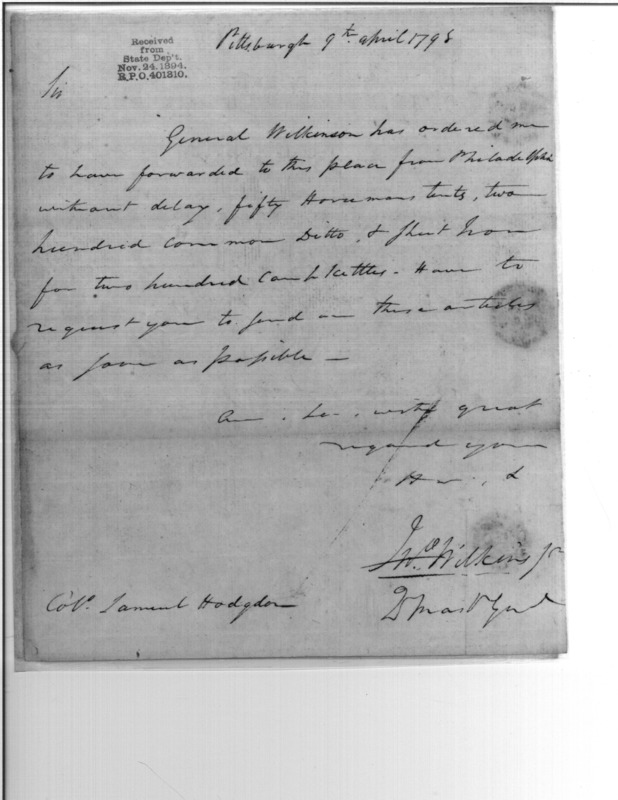 Received
from
State Dep't.
Nov. 24. 1894.
R.P.O. 401310.
Pittsburgh 9th april 1798
Sir
General Wilkinson has ordered me
to have forwarded to this place from Philadelphia
without delay, fifty Horsemans tents, two
hundred common Ditto, & Sheet Iron
for two hundred Camp Kettles - Have to
request you to send on these articles
as soon as possible -
with great
regard your
Jno. Wilkins Jr
Qr Mastr Genl
Colo. Samuel Hodgdon